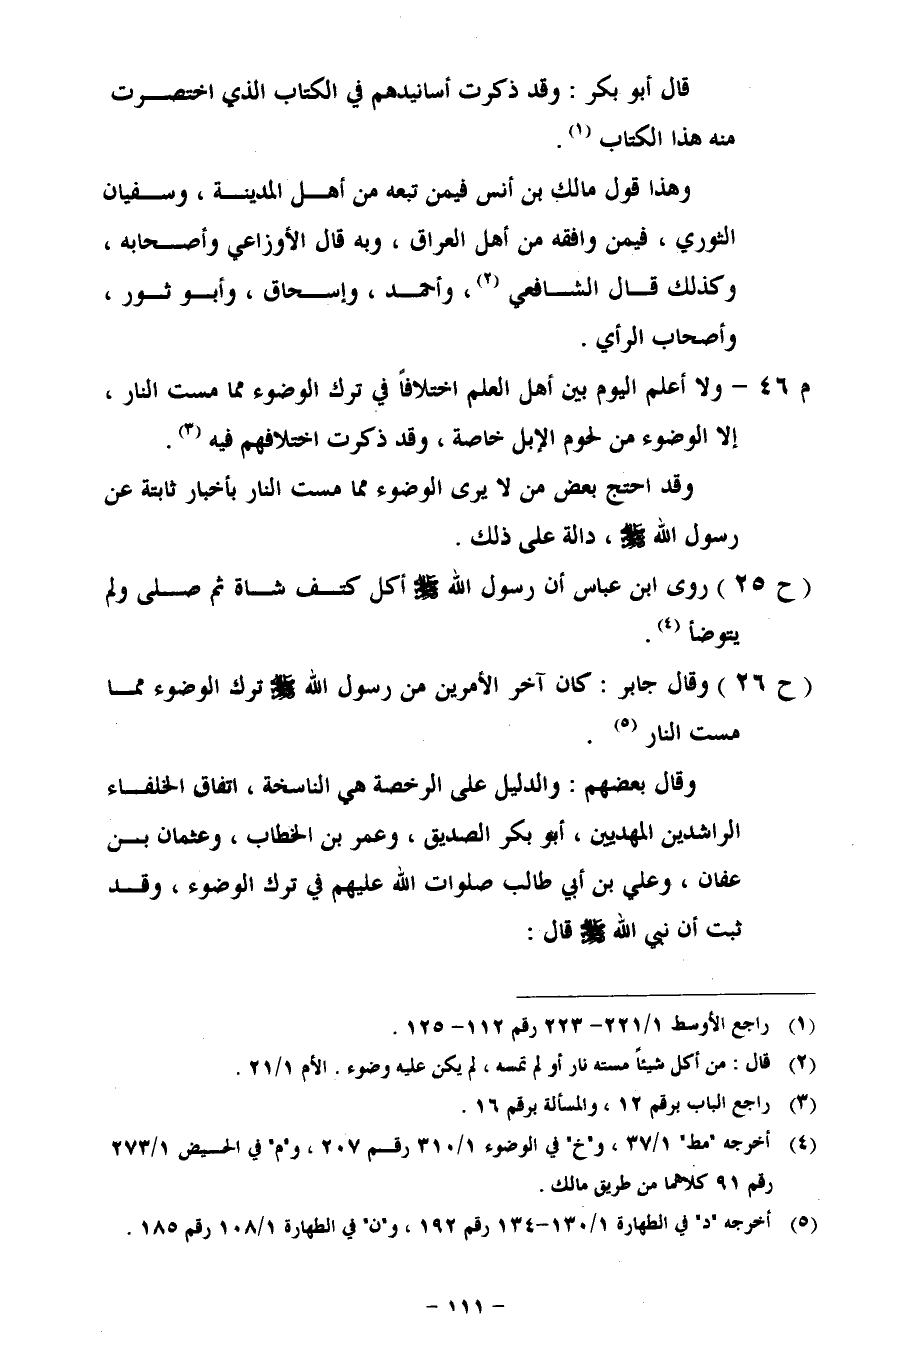 قال أبو بكر : وقد ذكرت أسانيدهم في الكتاب الذي اختصرت
منه هذا الكتاب (١) .
وهذا قول مالك بن أنس فيمن تبعه من أهل المدينة ، وسفيان
الثوري ، فيمن وافقه من أهل العراق ، وبه قال الأوزاعي وأصحابه ،
وكذلك قال الشافعي (٢) ، وأحمد ، وإسحاق ، وأبو ثور ،
وأصحاب الرأي .
م ٤٦ – ولا أعلم اليوم بين أهل العلم اختلافاً في ترك الوضوء مما مست النار ،
إلا الوضوء من لحوم الإبل خاصة ، وقد ذكرت اختلافهم فيه (٣) .
وقد احتج بعض من لا يرى الوضوء مما مست النار بأخبار ثابتة عن
رسول الله ﷺ ، دالة على ذلك .
( ح ٢٥ ) روى ابن عباس أن رسول الله ﷺ أكل كتف شاة ثم صلى ولم
يتوضأ (٤) .
( ح ٢٦ ) وقال جابر : كان آخر الأمرين من رسول الله ﷺ ترك الوضوء مما
مست النار (٥) .
وقال بعضهم : والدليل على الرخصة هي الناسخة ، اتفاق الخلفاء
الراشدين المهديين ، أبو بكر الصديق ، وعمر بن الخطاب ، وعثمان بن
عفان ، وعلي بن أبي طالب صلوات الله عليهم في ترك الوضوء ، وقد
ثبت أن نبي الله ﷺ قال :
(١) راجع الأوسط ٢٢١/١– ٢٢٣ رقم ١١٢– ١٢٥ .
(٢) قال : من أكل شيئاً مسته نار أو لم تمسه ، لم يكن عليه وضوء . الأم ٢١/١ .
(٣) راجع الباب برقم ١٢ ، والمسألة برقم ١٦ .
(٤) أخرجه "مط" ٣٧/١ ، و"خ" في الوضوء ٣١٠/١ رقم ٢٠٧ ، و"م" في الحيض ٢٧٣/١
رقم ٩١ كلاهما من طريق مالك .
(٥) أخرجه "د" في الطهارة ١٣٠/١–١٣٤ رقم ١٩٢ ، و"ن" في الطهارة ١٠٨/١ رقم ١٨٥ .
– ١١١ –